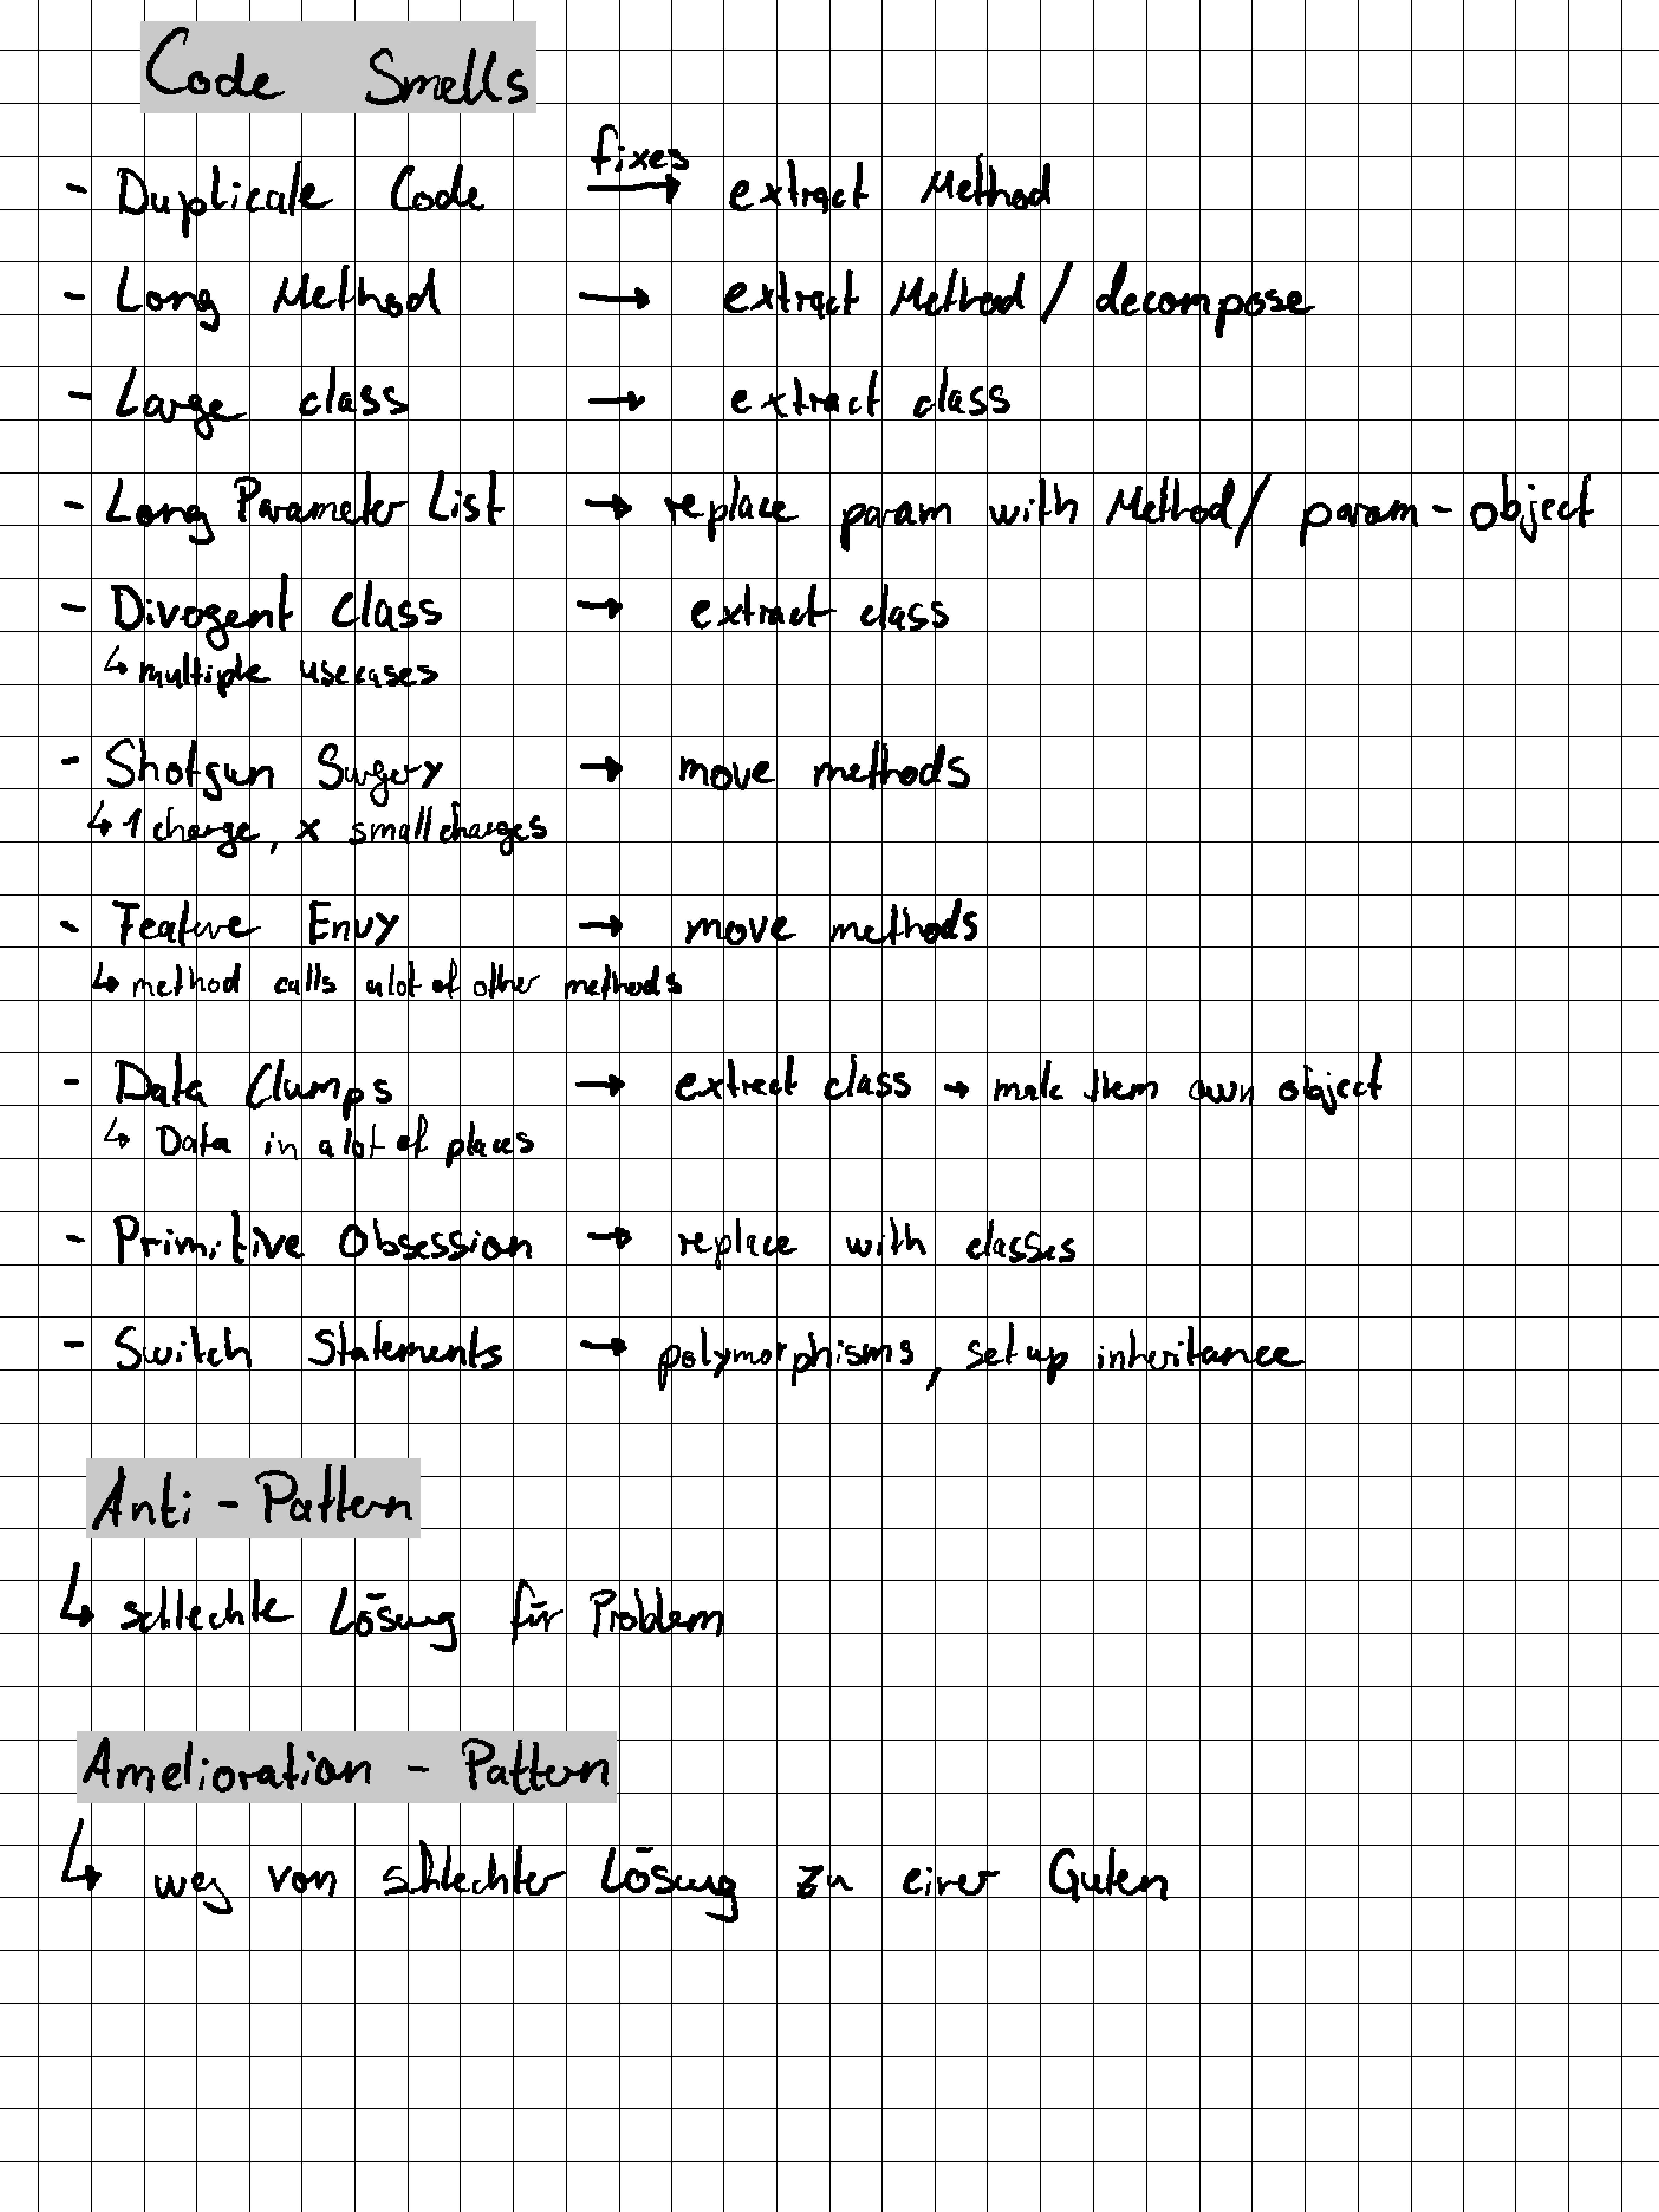 Code Smells
- Duplicate Code fixes → extract Method
- Long Method → extract Method / decompose
- Large class → extract class
- Long Parameter List → replace param with Method / param - object
- Divogent Class → extract class
↳ multiple usecases
- Shotgun Surgery → move methods
↳ 1 change, x small changes
- Feature Envy → move methods
↳ method calls alot of other methods
- Data Clumps → extract class → make them own object
↳ Data in a lot of places
- Primitive Obsession → replace with classes
- Switch Statements → polymorphisms, set up inheritance
Anti - Pattern
↳ schlechte Lösung für Problem
Amelioration - Pattern
↳ weg von schlechter Lösung zu einer Guten